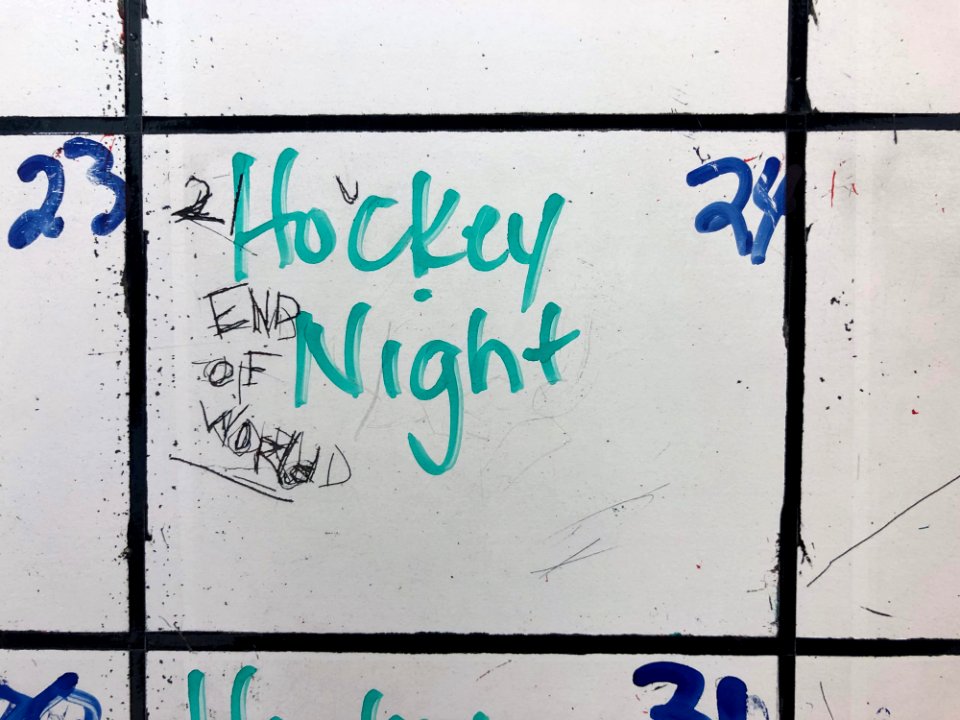 23
24
Hockey
Night
21
END
OF
WORLD
31